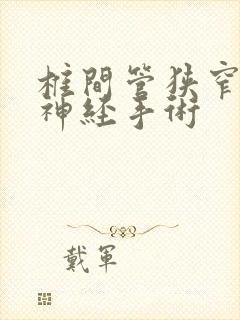 椎間管狭窄
神経手術
戴軍